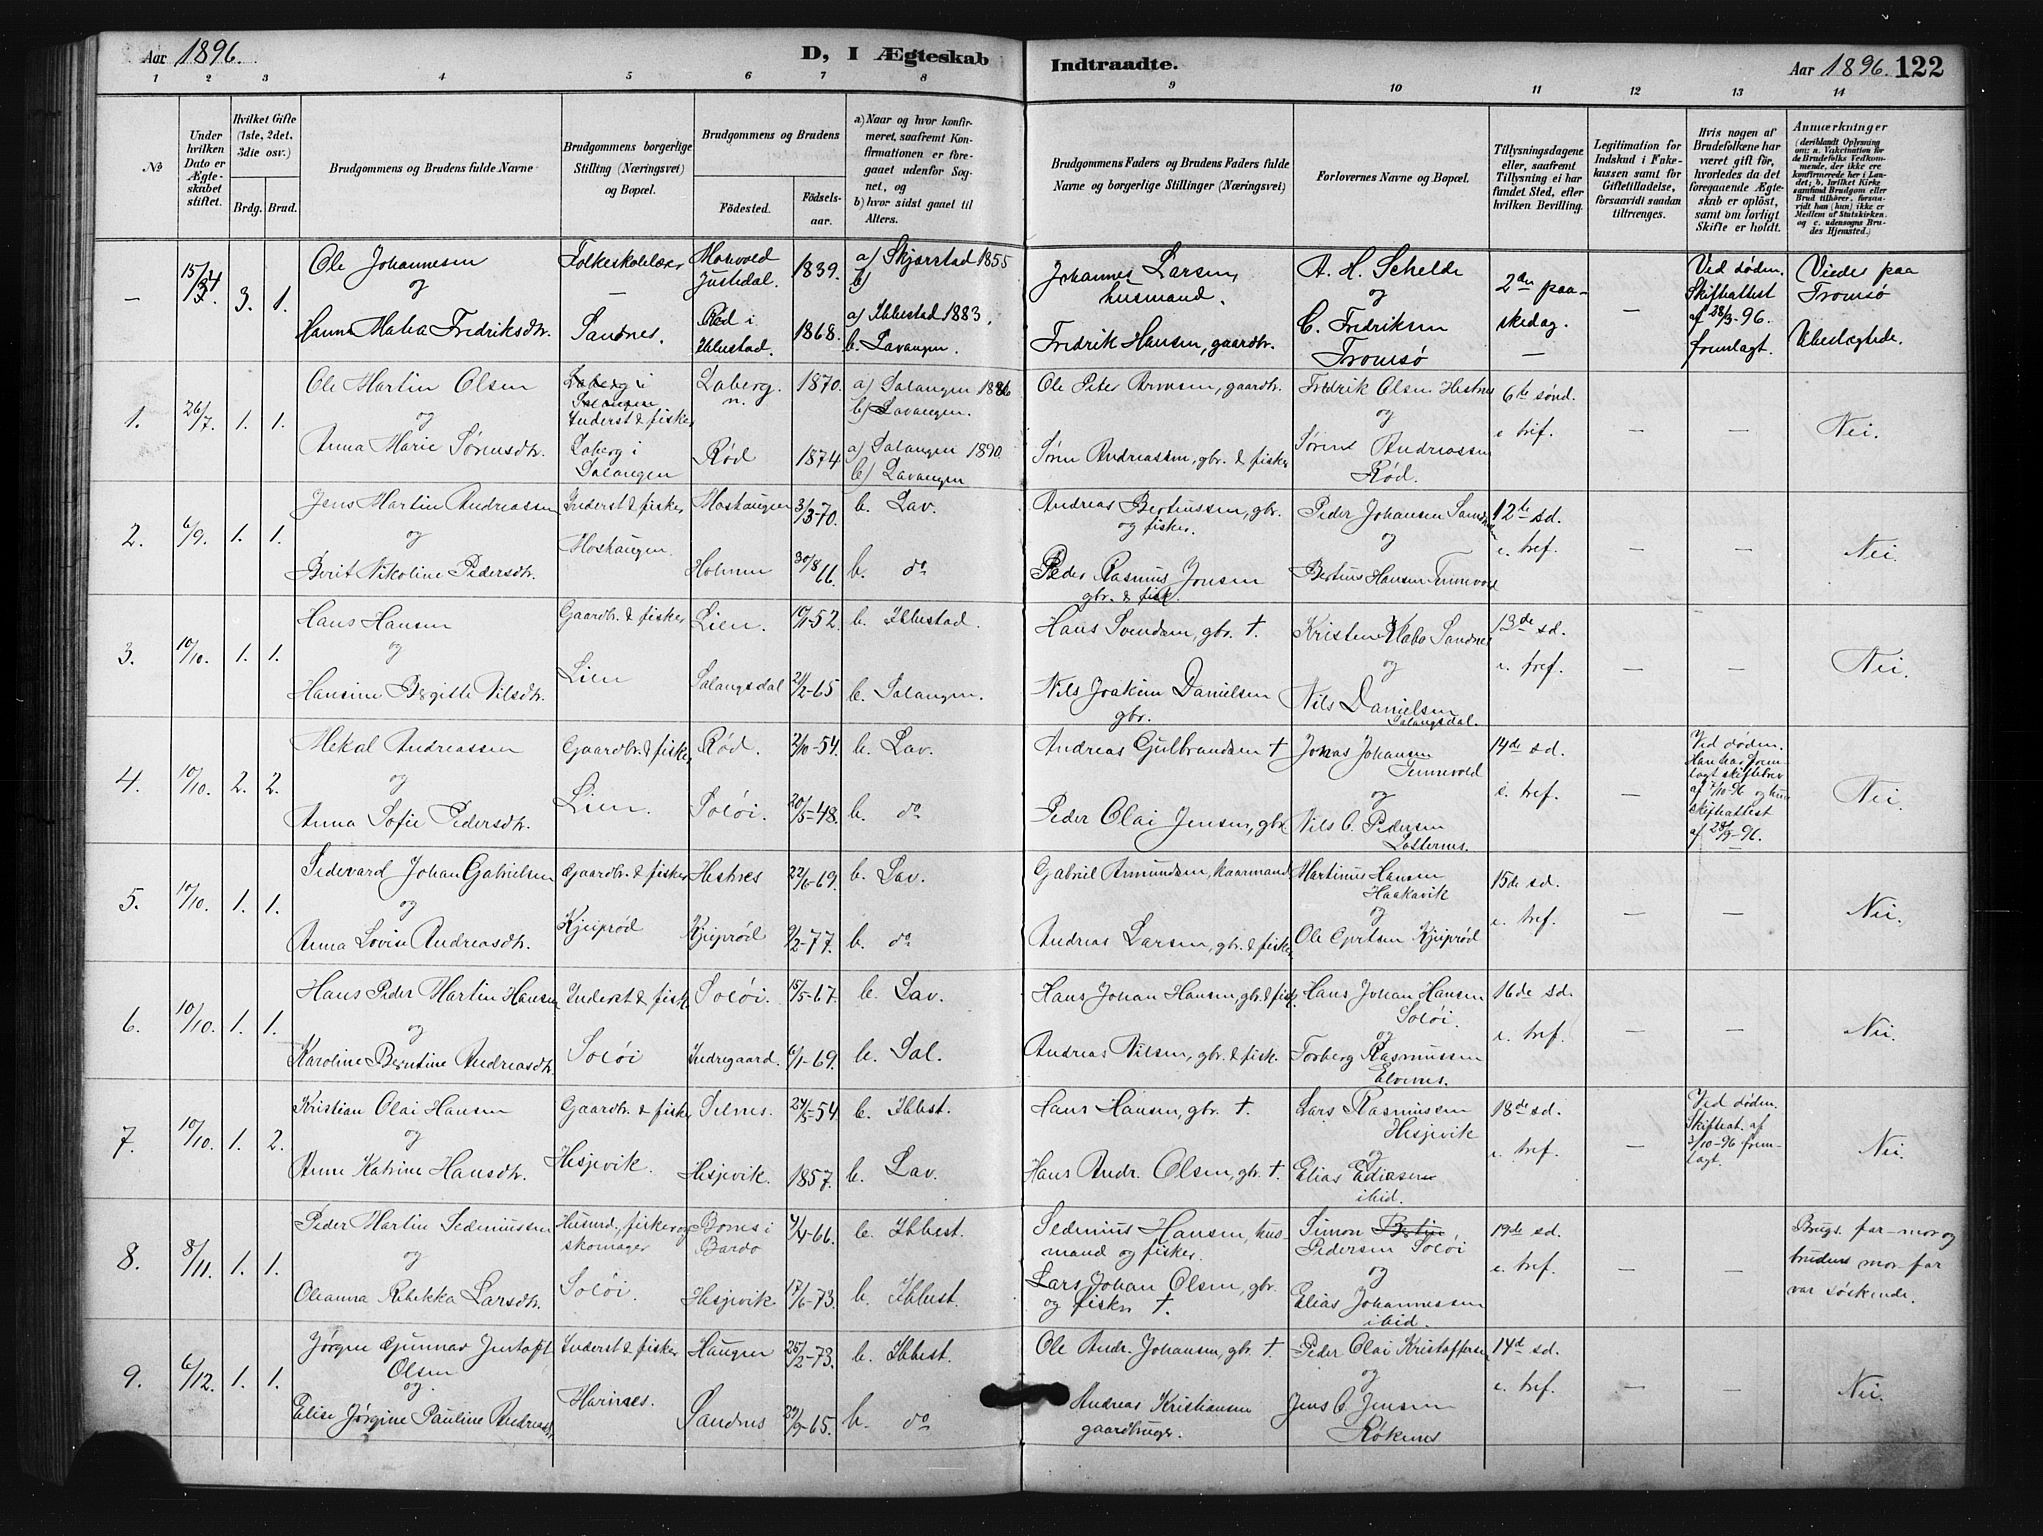 Aar 1896.
D, I Ægteskab
Indtraadte.
Aar 1896. 122
1 2 3 4 5 6 7 8 9 10 11 12 13 14
№
Under hvilken Dato er Ægteskabet stiftet.
Hvilket Gifte (1ste, 2det, 3die osv.)
Brdg. Brud.
Brudgommens og Brudens fulde Navne
Brudgommens borgerlige Stilling (Næringsvei) og Bopæl.
Brudgommens og Brudens
Födested.
Födselsaar.
a) Naar og hvor konfirmeret, saafremt Konfirmationen er foregaaet udenfor Sognet, og
b) hvor sidst gaaet til Alters.
Brudgommens Faders og Brudens Faders fulde Navne og borgerlige Stillinger (Næringsvei)
Forlovernes Navne og Bopæl.
Tillysningsdagene eller, saafremt Tillysning ei har fundet Sted, efter hvilken Bevilling.
Legitimation for Indskud i Enkekassen samt for Giftetilladelse, forsaavidt saadan tiltrænges.
Hvis nogen af Brudefolkene har været gift för, hvorledes da det foregaaende Ægteskab er oplöst, samt om lovligt Skifte er holdt.
Anmærkninger
(deriblandt Oplysning om: a. Vakcination for de Brudefolks Vedkommende, der ikke ere konfirmerede her i Landet; b. hvilket Kirkesamfund Brudgom eller Brud tilhörer, forsaavidt han (hun) ikke er Medlem af Statskirken, og c. udensogns Brudes Hjemsted.)
— 3. 1.
Ole Johannesen
og
Hanna Fredriksdtr.
Folkeskolelærer
Sandnes.
Justedal. 1839.
Rød i Ibbestad. 1868.
a) Skjerstad 1855
b)
a) Ibbestad 1883.
b. Lavangen.
Johannes Larsen, husmand.
Fredrik Hansen, gaardbr.
A. H. Schelde
og
C. Fredriksen
Tromsø
2den paaskedag.
—
—
Ved døden. Skifteattest af 28/3-96. fremlagt.
Viedes paa Tromsø
Ubeslægtede.
1. 26/7. 1. 1.
Ole Martin Olsen
og
Anna Marie Sørensdtr.
Laberg i Salangen
Inderst & fisker
Laberg i Salangen
Laberg. 1870.
Rød 1874
a) Salangen 1886
b) Lavangen.
a) Salangen 1890.
b) Lavangen
Ole Peter Arnesen, gaardbr.
Søren Andreassen, gbr. & fisker
Fredrik Olsen Hestnes
og
Sørend Andreassen
Rød.
6te sønd.
e. tref.
— —
Nei.
2. 6/9. 1. 1.
Jens Martin Andreassen
og
Berit Nikoline Pedersdtr.
Inderst & fisker
Moshaugen
Moshaugen 3/3-70.
Holmen 30/8 66.
b. Lav.
b. do
Andreas Bertiussen, gbr. og fisker.
Peder Rasmus Jensen
gbr. & fisk.
Peder Johansen Sandnes
og
Bertius Hansen Tennevold
12te sd.
e. tref.
— —
Nei
3. 10/10. 1. 1.
Hans Hansen
og
Hansine Birgitte Nilsdtr.
Gaardbr. & fisker
Lien
Lien.
Salangsdal 21/2-65
b. Ibbestad.
b. Salangen.
Hans Svendsen, gbr. †.
Nils Joakim Danielsen
gbr.
Kristen Sandnes
og
Nils Danielsen
Salangsdal.
13de sd.
e. tref.
— —
Nei.
4. 10/10. 2. 2.
Mekal Andreassen
og
Anna Sofie Pedersdtr.
Gaardbr. & fisker
Lien.
Rød. 2/10-54.
Soløi. 20/5-48.
b. Lav.
b. do
Andreas Gulbrandsen †
Peder Olai Jensen, gbr.
Jonas Johansen
Tennevold
og
Nils C. Pedersen
14de sd.
e. tref.
—
Ved døden. Han har fremlagt skiftebrev af 7/10-96 og hun skifteattest
Nei.
5. 10/10. 1. 1.
Sedevard Johan Gabrielsen
og
Anna Lovise Andreasdtr.
Gaardbr. & fisker
Kjeiprød
Hestnes 22/6-69.
Kjeiprød 9/2-77.
b. Lav.
b. do
Gabriel Amundsen, kaarmand
Andreas Larsen, gbr. & fisker
Martinus Hansen
Haakavik
og
Ole Kjeiprød
15de sd.
e. tref.
— —
Nei.
6. 10/10. 1. 1.
Hans Peder Martin Hansen
og
Karoline Berntine Andreasdtr.
Inderst & fisker
Soløi
Soløi. 15/5-67.
Indregaard. 6/1-69.
b. Lav.
b. Sal.
Hans Johan Hansen, gbr. & fisk.
Andreas Nilsen, gbr. & fisk.
Hans Johan Hansen
Soløi.
og
Torberg Rasmussen
Elvenes.
16de sd.
e. tref.
— —
Nei
7. 10/10. 1. 2.
Kristian Olai Hansen
og
Anne Katrine Hansdtr.
Gaardbr. & fisker
Hesjevik.
Selnes. 24/5-54
Hesjevik. 1857.
b. Ibbest.
b. Lav.
Hans Hansen, gbr. †.
Hans Andr. Olsen, gbr. †.
Lars Rasmussen
Hesjevik
og
Elias
ibid.
18de sd.
e. tref.
—
Ved døden. Skifteat. af 3/10-96 fremlagt.
Nei.
8. 8/11. 1. 1.
Peder Martin Sedeniussen
og
Oleanna Rebekka Larsdtr.
Husmd., fisker og skomager
Soløi.
Bones i Bardo 4/4-66.
Hesjevik 17/6-73.
b. Ibbest.
b. Ibbest.
Sedenius Hansen, husmand og fisker.
Lars Johan Olsen, gbr. og fisker †.
Simon
Pedersen Soløi
og
Elias Johannessen
ibid.
19de sd.
e. tref.
— —
Brugs. far-mor og brudens mor-far var søskende.
9. 6/12. 1. 1.
Jørgen Gunnar Olsen
og
Elise Jørgine Pauline Andreasdtr.
Inderst & fisker
Haugen 25/2-73.
Sandnes 29/9-65.
b. Ibbest.
b. do
Ole Andr. Johansen, gbr. †.
Andreas Kristiansen
gaardbruger.
Peder Olai Kristoffersen
og
Jens C. Jensen
Røkenes
14d sd.
e. tref.
— —
Nei.